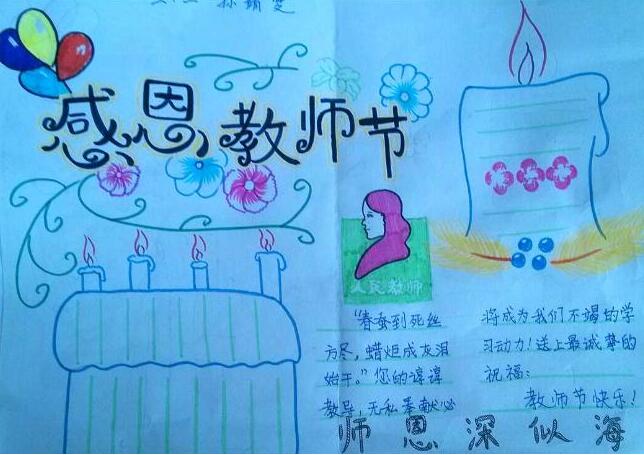 感恩教师节
人民教师
“春蚕到死丝
方尽，蜡炬成灰泪
始干。”您的谆谆
教导，无私奉献必
将成为我们不竭的学
习动力！送上最诚挚的
祝福：
教师节快乐！
师恩深似海